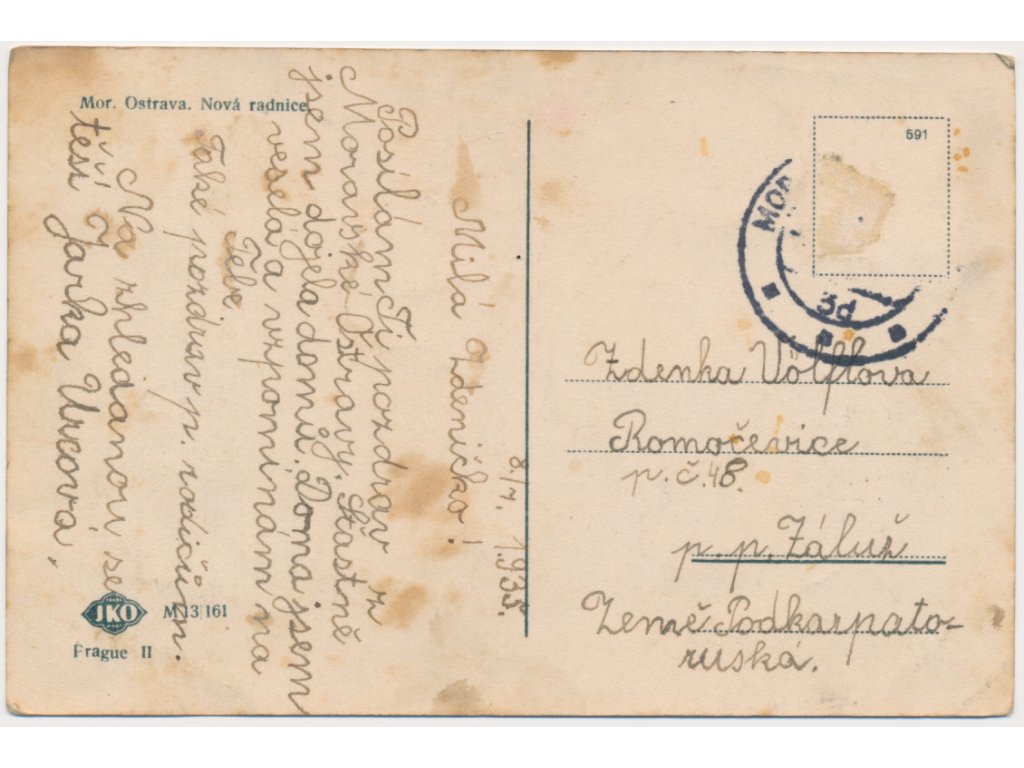 Mor. Ostrava. Nová radnice.
8/7. 1935.
Milá Zdeničko!
Posílám Ti pozdrav z
Moravské Ostravy. Štastně
jsem dojela domů. Doma jsem
veselá a vzpomínám na
Tebe.
Také pozdrav p. rodičům.
Na shledanou se
těší Jarka Urcová,
JKO
M 13/161
Prague II
591
MOR
3d
Zdenka Völflova
Romočevice
p.č. 48.
p. p. Záluž
Země Podkarpato-
ruská.